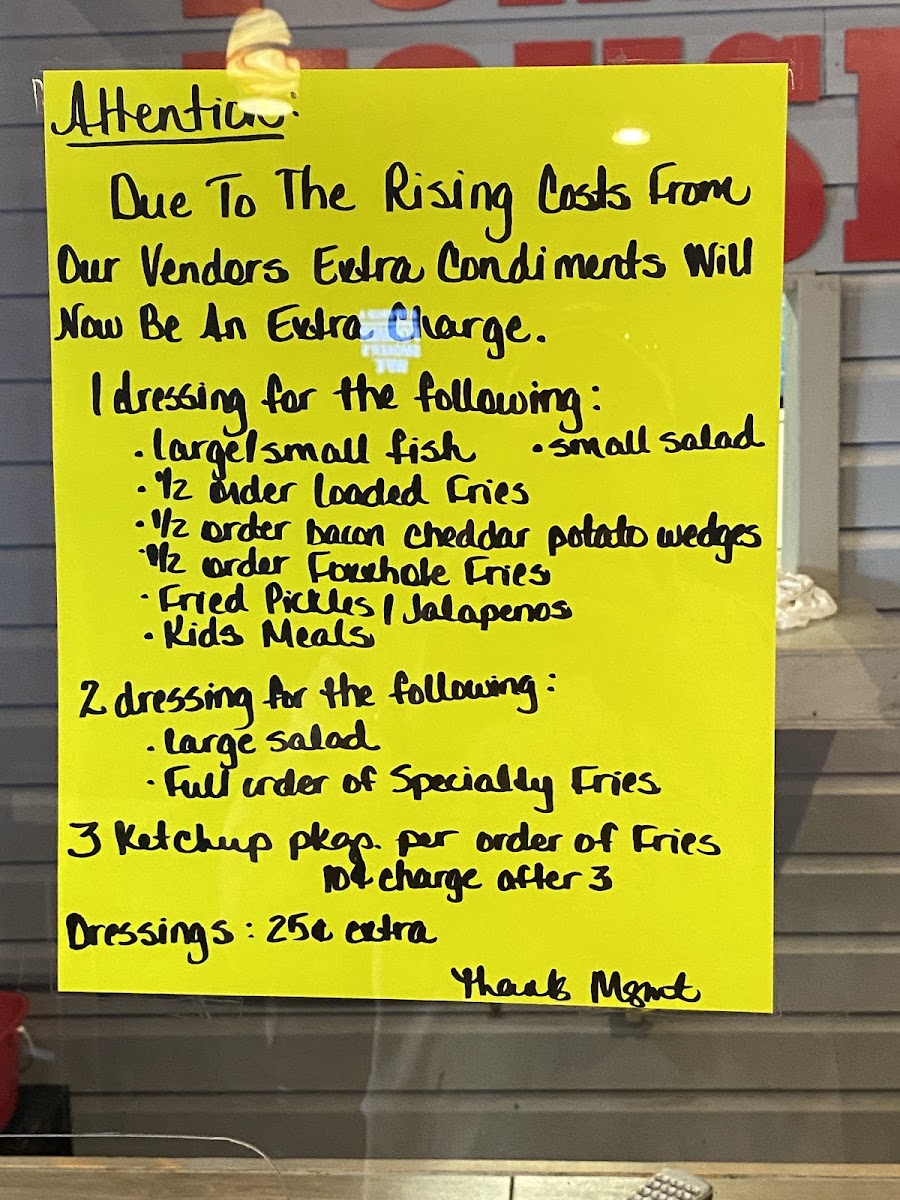 Attention:
Due To The Rising Costs From
Our Vendors Extra Condiments Will
Now Be An Extra Charge.
1 dressing for the following:
· large/small fish · small salad
· 1/2 order loaded Fries
· 1/2 order bacon cheddar potato wedges
· 1/2 order Foxxhole Fries
· Fried Pickles / Jalapenos
· Kids Meals
2 dressing for the following:
· large salad
· Full order of Specialty Fries
3 Ketchup pkgs. per order of Fries
10¢ charge after 3
Dressings: 25¢ extra
Thanks Mgmt